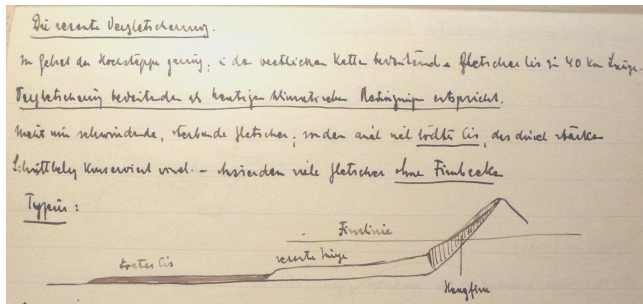 Die rezente Vergletscherung.
Im Gebiet der Hochsteppe gering; i. den westlichen Ketten bedeutende Gletscher bis zu 40 Km Länge.
Vergletscherung bedeutender als heutigen klimatischen Bedingungen entspricht.
Nicht nur schwindende, sterbende Gletscher, sondern auch viel totes Eis, das durch starken
Schuttbelag konserviert wird. – viele Gletscher ohne Firnbecken
Typus:
Firnlinie
totes Eis
rezente Zunge
Hangfirn